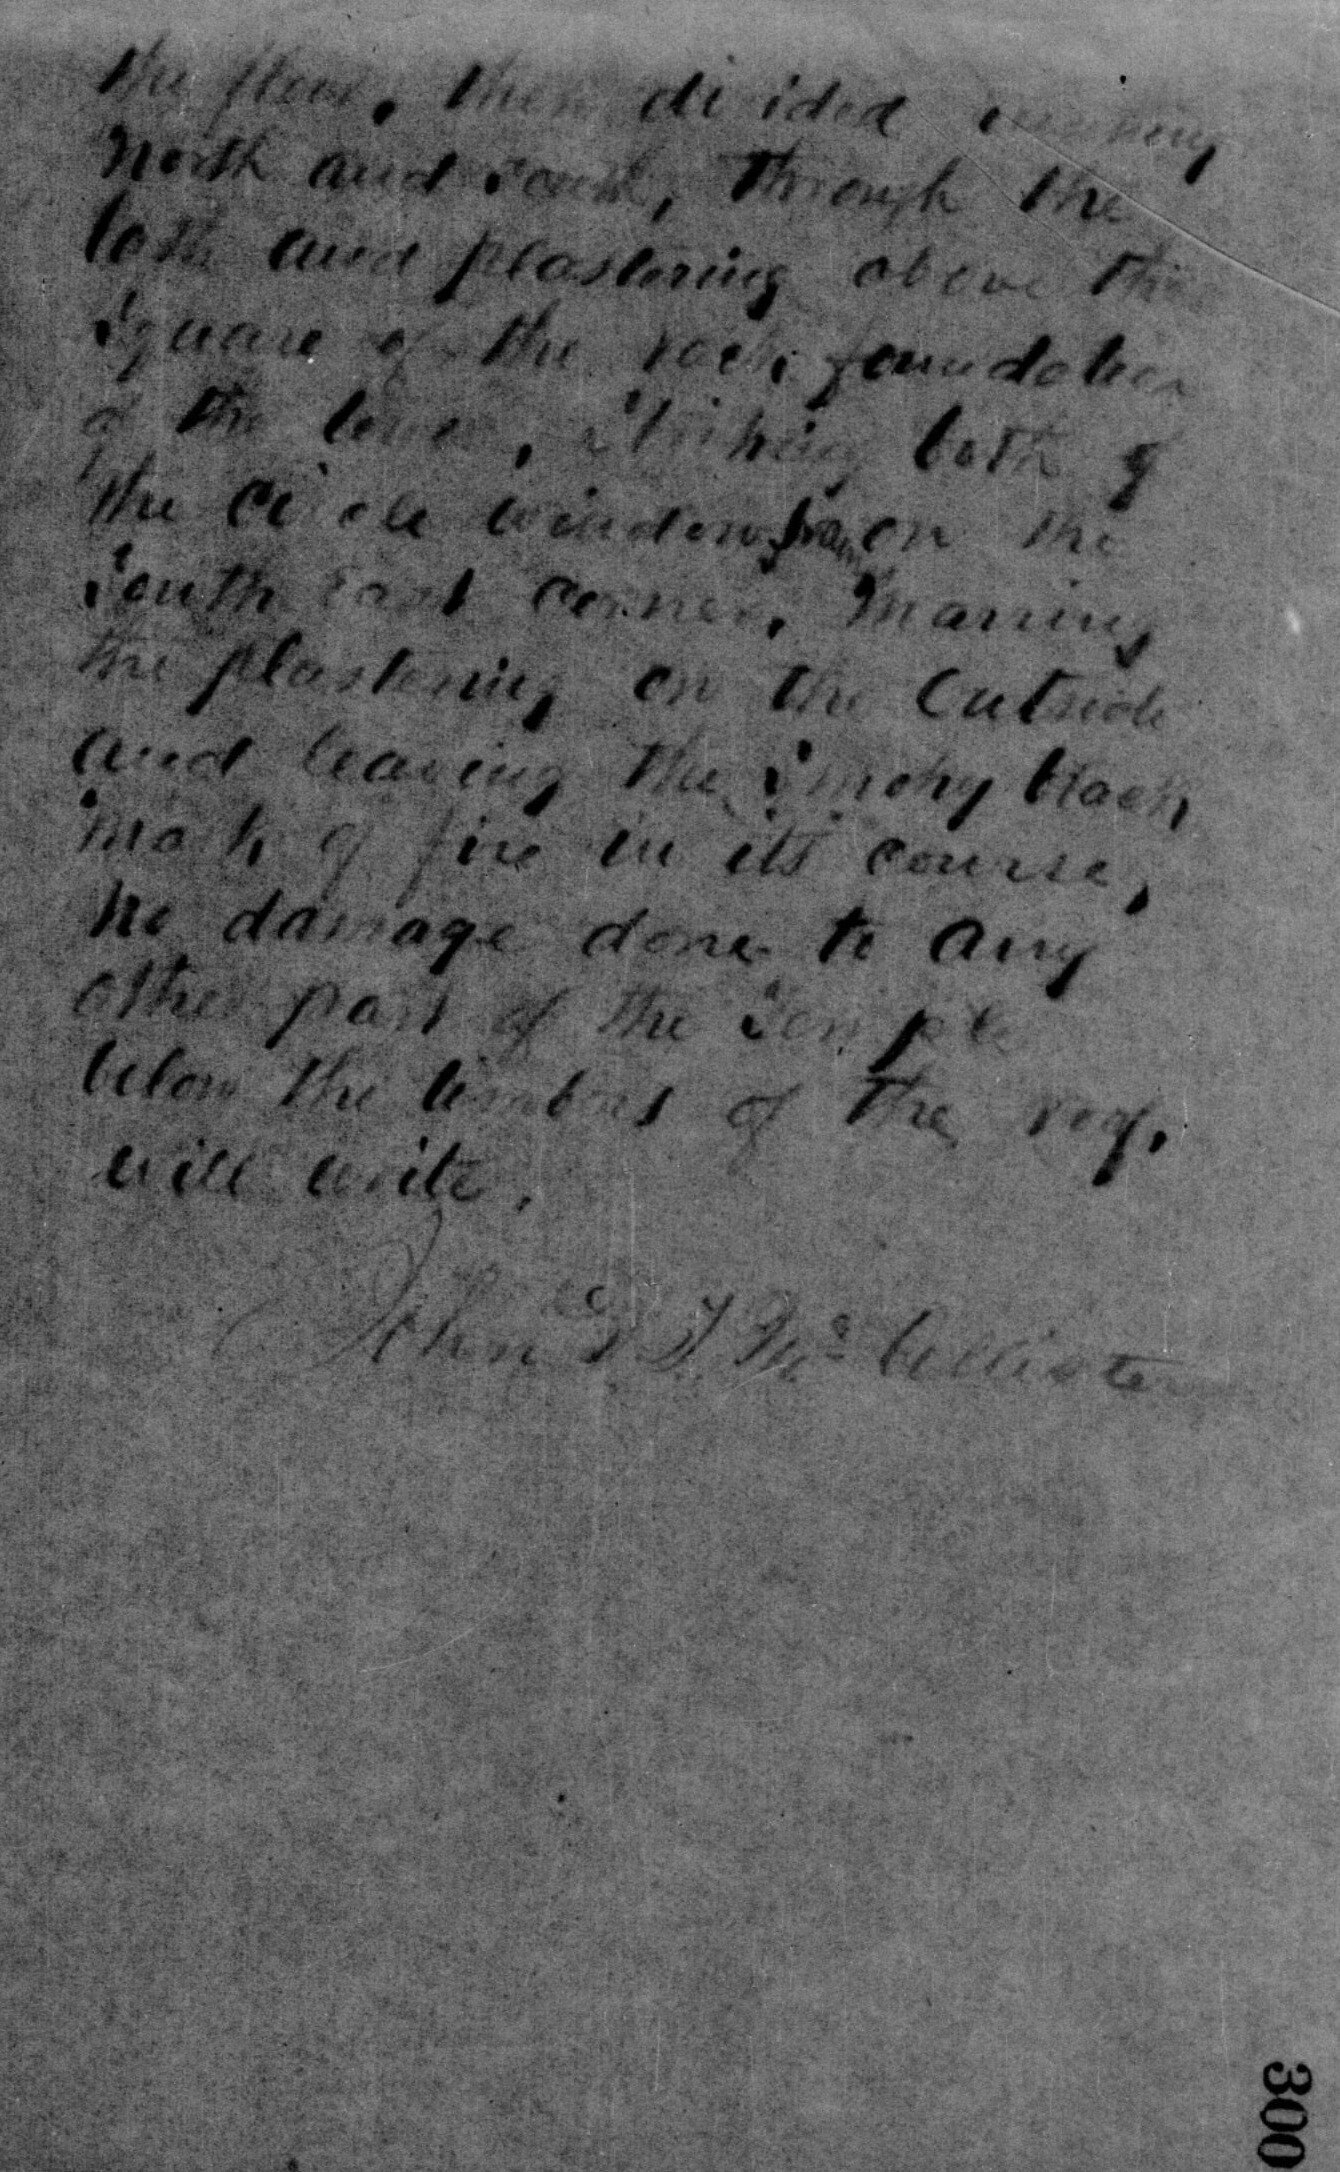 the floor, then divided running
North and South, through the
lath and plastering above the
Square of the rock foundation
of the tower, striking both of
the Circle windows on the
South East Corner, Marring
the plastering on the Outside
and leaving the Smoky black
mark of fire in its course,
no damage done to any
other part of the Temple
below the timbers of the roof,
will write.
John D. T. McAllister
300